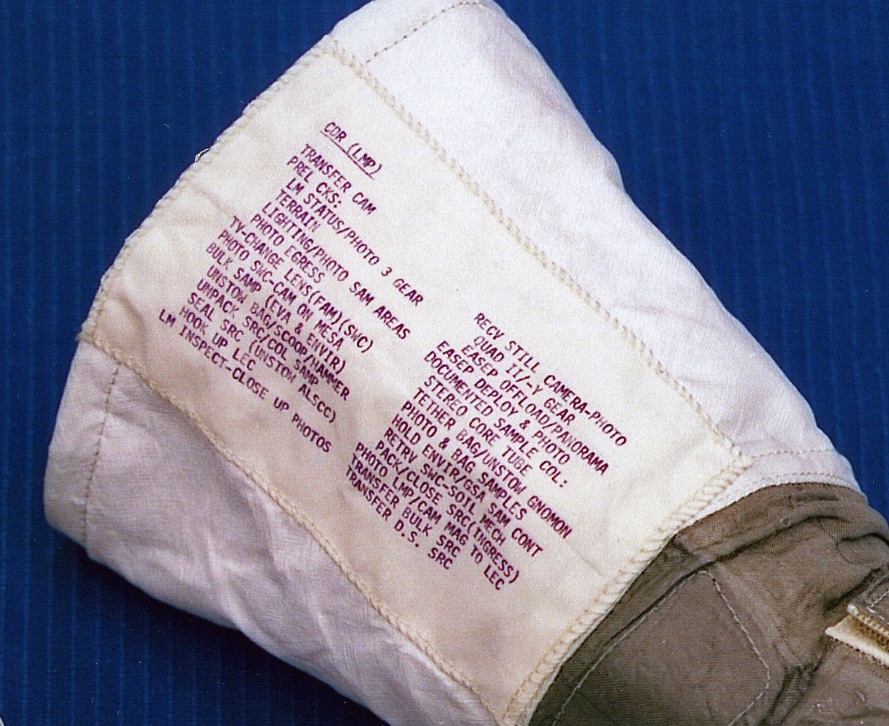 CDR (LMP)
TRANSFER CAM
PREL CKS:
LM STATUS/PHOTO 3 GEAR
TERRAIN
LIGHTING/PHOTO SAM AREAS
PHOTO EGRESS
TV-CHANGE LENS(FAM)(SWC)
PHOTO SWC-CAM ON MESA
BULK SAMP (EVA & ENVIR)
UNSTOW BAG/SCOOP/HAMMER
UNPACK SRC/COL SAMP
SEAL SRC (UNSTOW ALSCC)
HOOK UP LEC
LM INSPECT-CLOSE UP PHOTOS
RECV STILL CAMERA-PHOTO
QUAD II/-Y GEAR
EASEP OFFLOAD/PANORAMA
EASEP DEPLOY & PHOTO
DOCUMENTED SAMPLE COL:
STEREO CORE TUBE
TETHER BAG/UNSTOW GNOMON
PHOTO & BAG SAMPLES
HOLD ENVIR/GSA SAM CONT
RETRV SWC-SOIL MECH
PACK/CLOSE SRC(INGRESS)
PHOTO LMP/CAM MAG TO LEC
TRANSFER BULK SRC
TRANSFER D.S. SRC